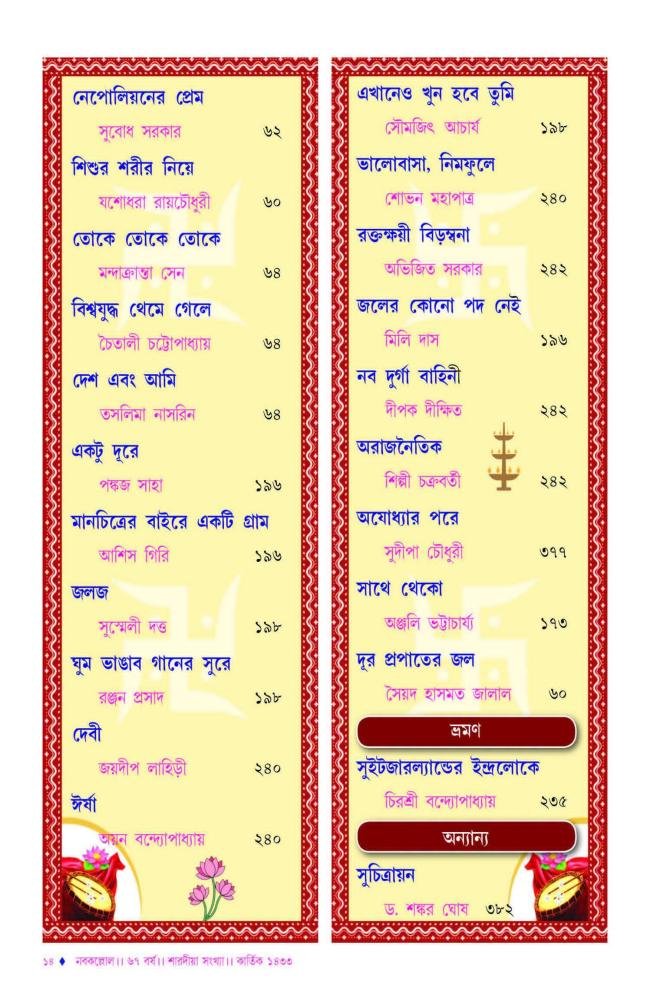 নেপোলিয়নের প্রেম
সুবোধ সরকার ৬২
শিশুর শরীর নিয়ে
যশোধরা রায়চৌধুরী ৬০
তোকে তোকে তোকে
মন্দাক্রান্তা সেন ৬৪
বিশ্বযুদ্ধ থেমে গেলে
চৈতালী চট্টোপাধ্যায় ৬৪
দেশ এবং আমি
তসলিমা নাসরিন ৬৪
একটু দূরে
পঙ্কজ সাহা ১৯৬
মানচিত্রের বাইরে একটি গ্রাম
আশিস গিরি ১৯৬
জলজ
সুস্মেলী দত্ত ১৯৮
ঘুম ভাঙাব গানের সুরে
রঞ্জন প্রসাদ ১৯৮
দেবী
জয়দীপ লাহিড়ী ২৪০
ঈর্ষা
অয়ন বন্দ্যোপাধ্যায় ২৪০
এখানেও খুন হবে তুমি
সৌমজিৎ আচার্য ১৯৮
ভালোবাসা, নিমফুলে
শোভন মহাপাত্র ২৪০
রক্তক্ষয়ী বিড়ম্বনা
অভিজিত সরকার ২৪২
জলের কোনো পদ নেই
মিলি দাস ১৯৬
নব দুর্গা বাহিনী
দীপক দীক্ষিত ২৪২
অরাজনৈতিক
শিল্পী চক্রবর্তী ২৪২
অযোধ্যার পরে
সুদীপা চৌধুরী ৩৭৭
সাথে থেকো
অঞ্জলি ভট্টাচার্য্য ১৭৩
দূর প্রপাতের জল
সৈয়দ হাসমত জালাল ৬০
ভ্রমণ
সুইটজারল্যান্ডের ইন্দ্রলোকে
চিরশ্রী বন্দ্যোপাধ্যায় ২৩৫
অন্যান্য
সুচিত্রায়ন
ড. শঙ্কর ঘোষ ৩৮২
১৪ ♦ নবকল্লোল।। ৬৭ বর্ষ।। শারদীয়া সংখ্যা।। কার্তিক ১৪৩৩